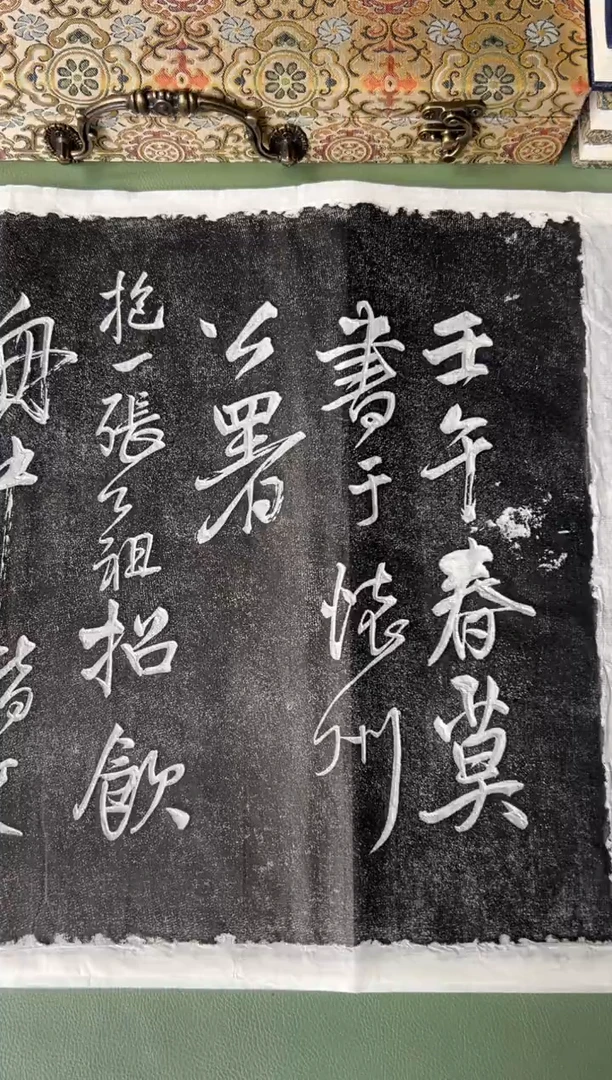 壬午春莫
書于懷州
公署
抱一張公祖招飲